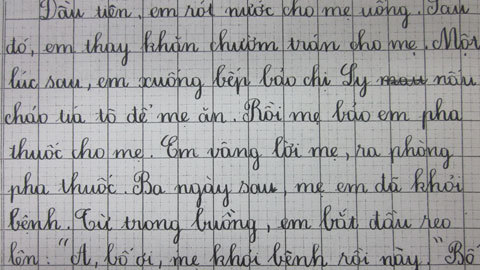 Đầu tiên, em rót nước cho mẹ uống. Sau
đó, em thay khăn chườm trán cho mẹ. Một
lúc sau, em xuống bếp bảo chị Ly nấu
cháo tía tô để mẹ ăn. Rồi mẹ bảo em pha
thuốc cho mẹ. Em vâng lời mẹ, ra phòng
pha thuốc. Ba ngày sau, mẹ em đã khỏi
bệnh. Từ trong buồng, em bắt đầu reo
lên: "A, bố ơi, mẹ khỏi bệnh rồi này." Bố